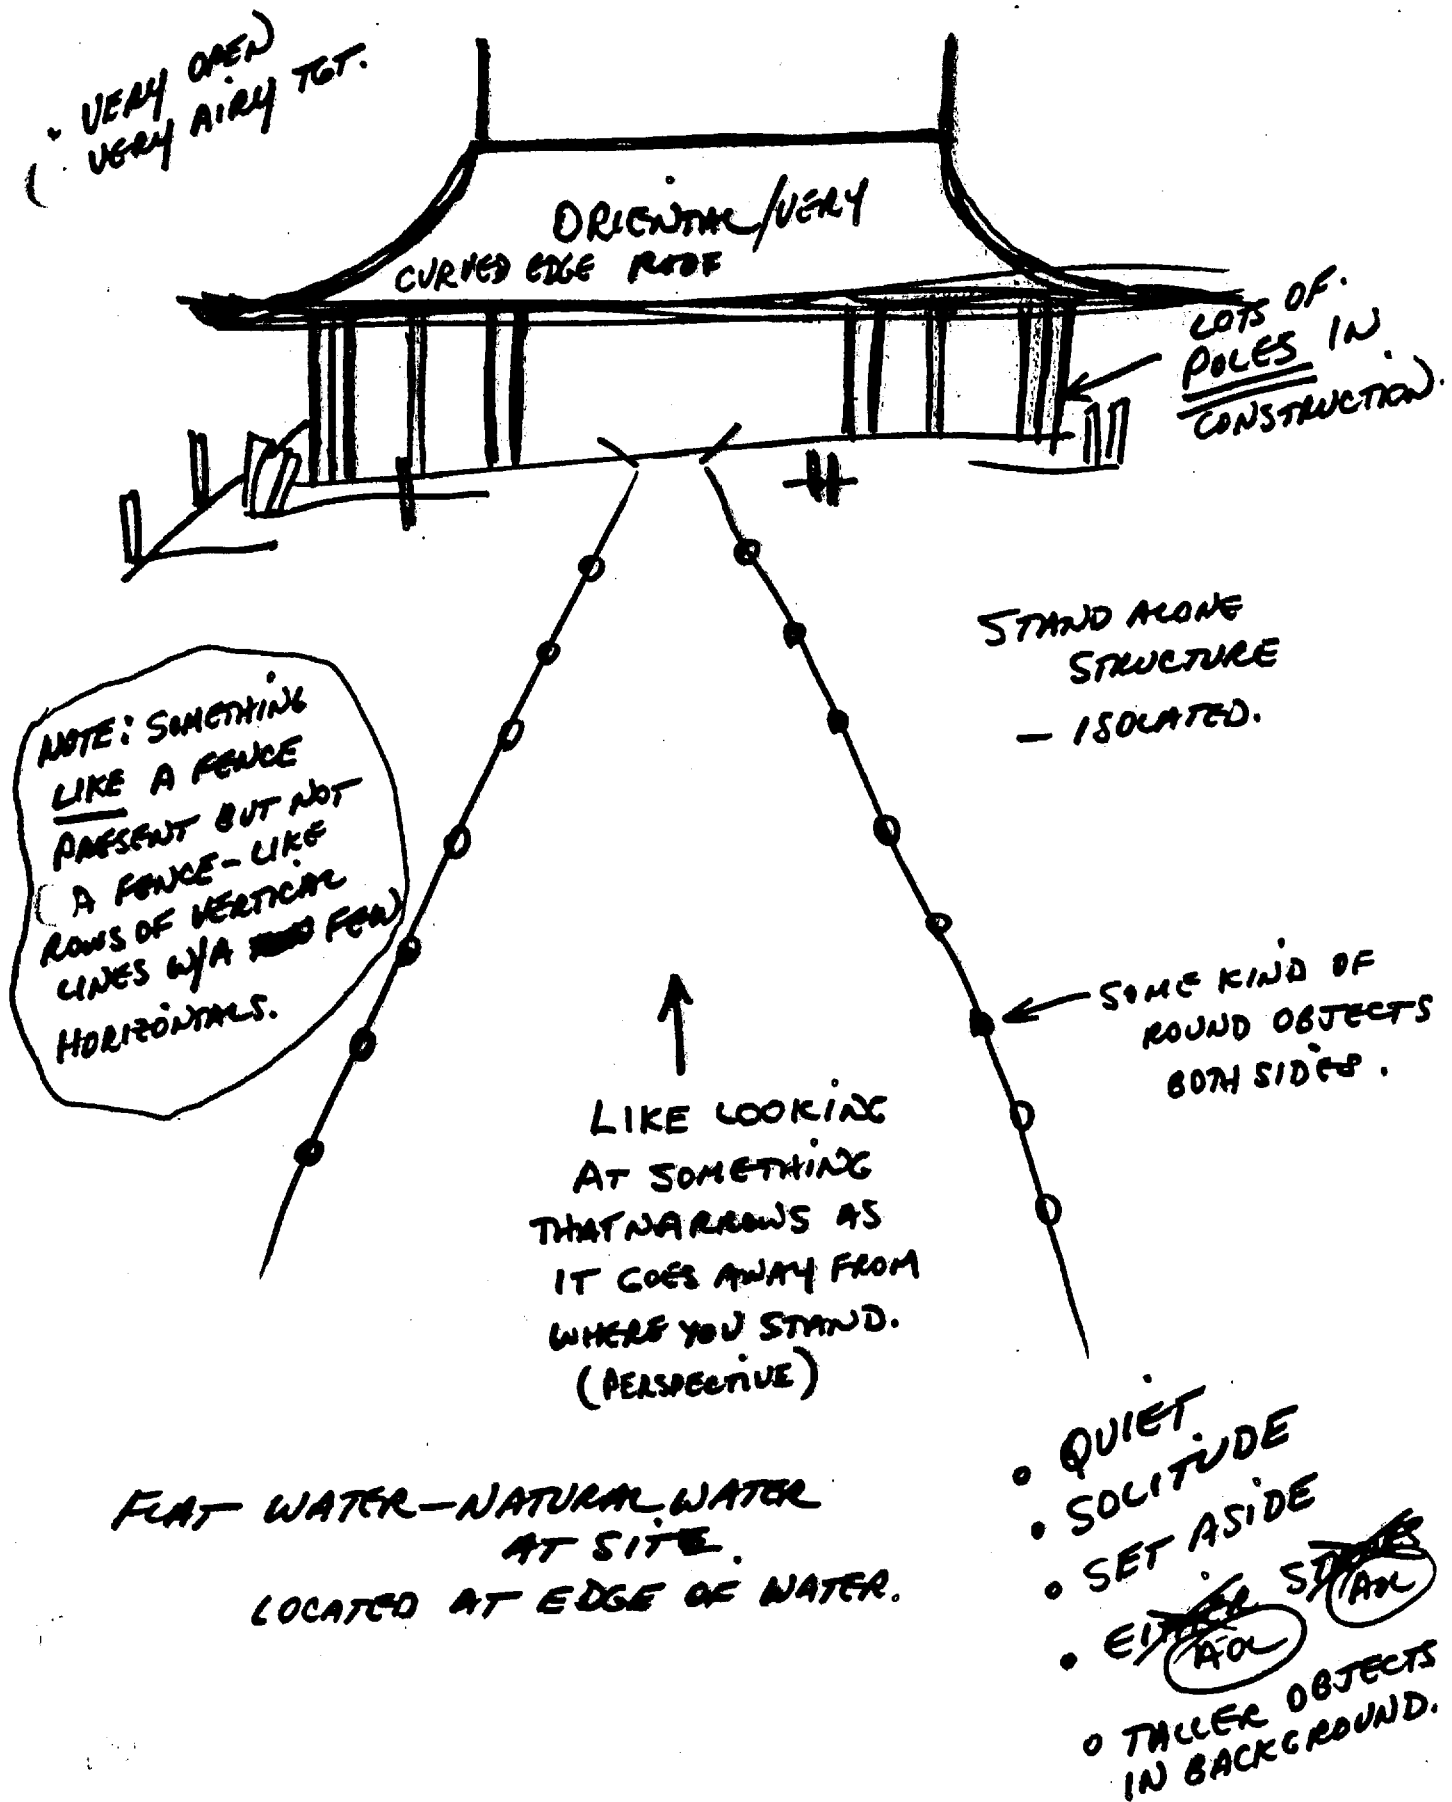 • VERY OPEN
VERY AIRY TGT.
ORIENTAL/VERY
CURVED EDGE ROOF
LOTS OF
POLES IN
CONSTRUCTION.
STAND ALONE
STRUCTURE
— ISOLATED.
NOTE: SOMETHING
LIKE A FENCE
PRESENT BUT NOT
A FENCE - LIKE
ROWS OF VERTICAL
LINES W/A FEW
HORIZONTALS.
SOME KIND OF
ROUND OBJECTS
BOTH SIDES.
LIKE LOOKING
AT SOMETHING
THAT NARROWS AS
IT GOES AWAY FROM
WHERE YOU STAND.
(PERSPECTIVE)
FLAT WATER — NATURAL WATER
AT SITE.
LOCATED AT EDGE OF WATER.
• QUIET
• SOLITUDE
• SET ASIDE
• EITHER
AOL
AOL
• TALLER OBJECTS
IN BACKGROUND.